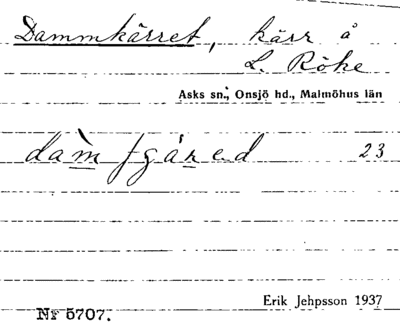 Dammkärret, kärr å
L. Röke
Asks sn., Onsjö hd., Malmöhus län
23
Erik Jehpsson 1937
Nr 5707.